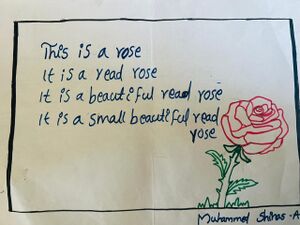 This is a rose
It is a read rose
It is a beautiful read rose
It is a small beautiful read
rose
Muhammed Shinas -A